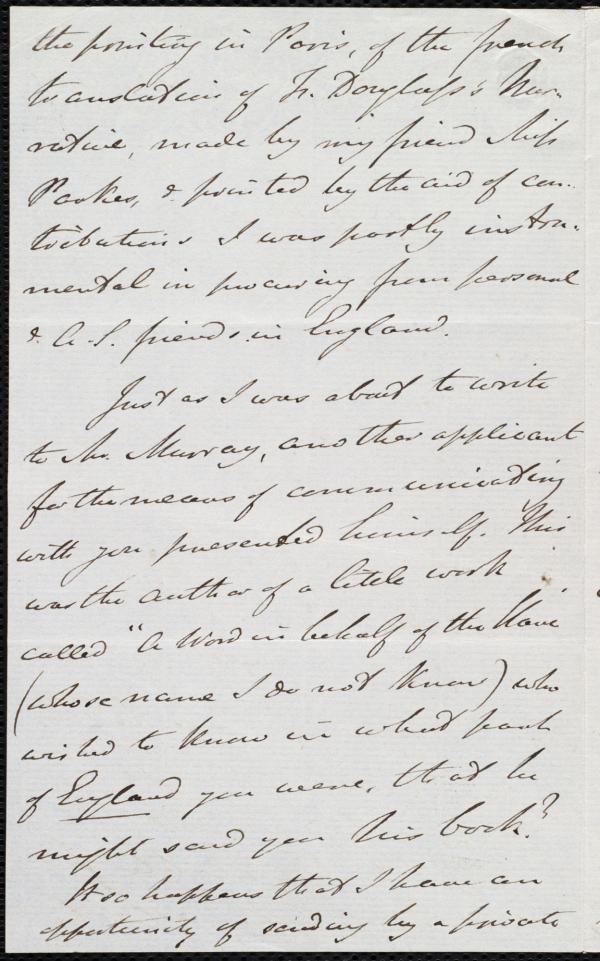 the printing in Paris, of the french
translation of Fr. Douglass's Nar-
rative, made by my friend Miss
Parkes, & printed by the aid of con-
tributions I was partly instru-
mental in procuring from personal
& A.S. friends in England.
Just as I was about to write
to Mr. Murray, another applicant
for the means of communicating
with you presented himself. This
was the author of a little work
called "A Word in behalf of the Slave
(whose name I do not know) who
wished to know in what part
of England you were, that he
might send you his book.?
It so happens that I have an
opportunity of sending by a private